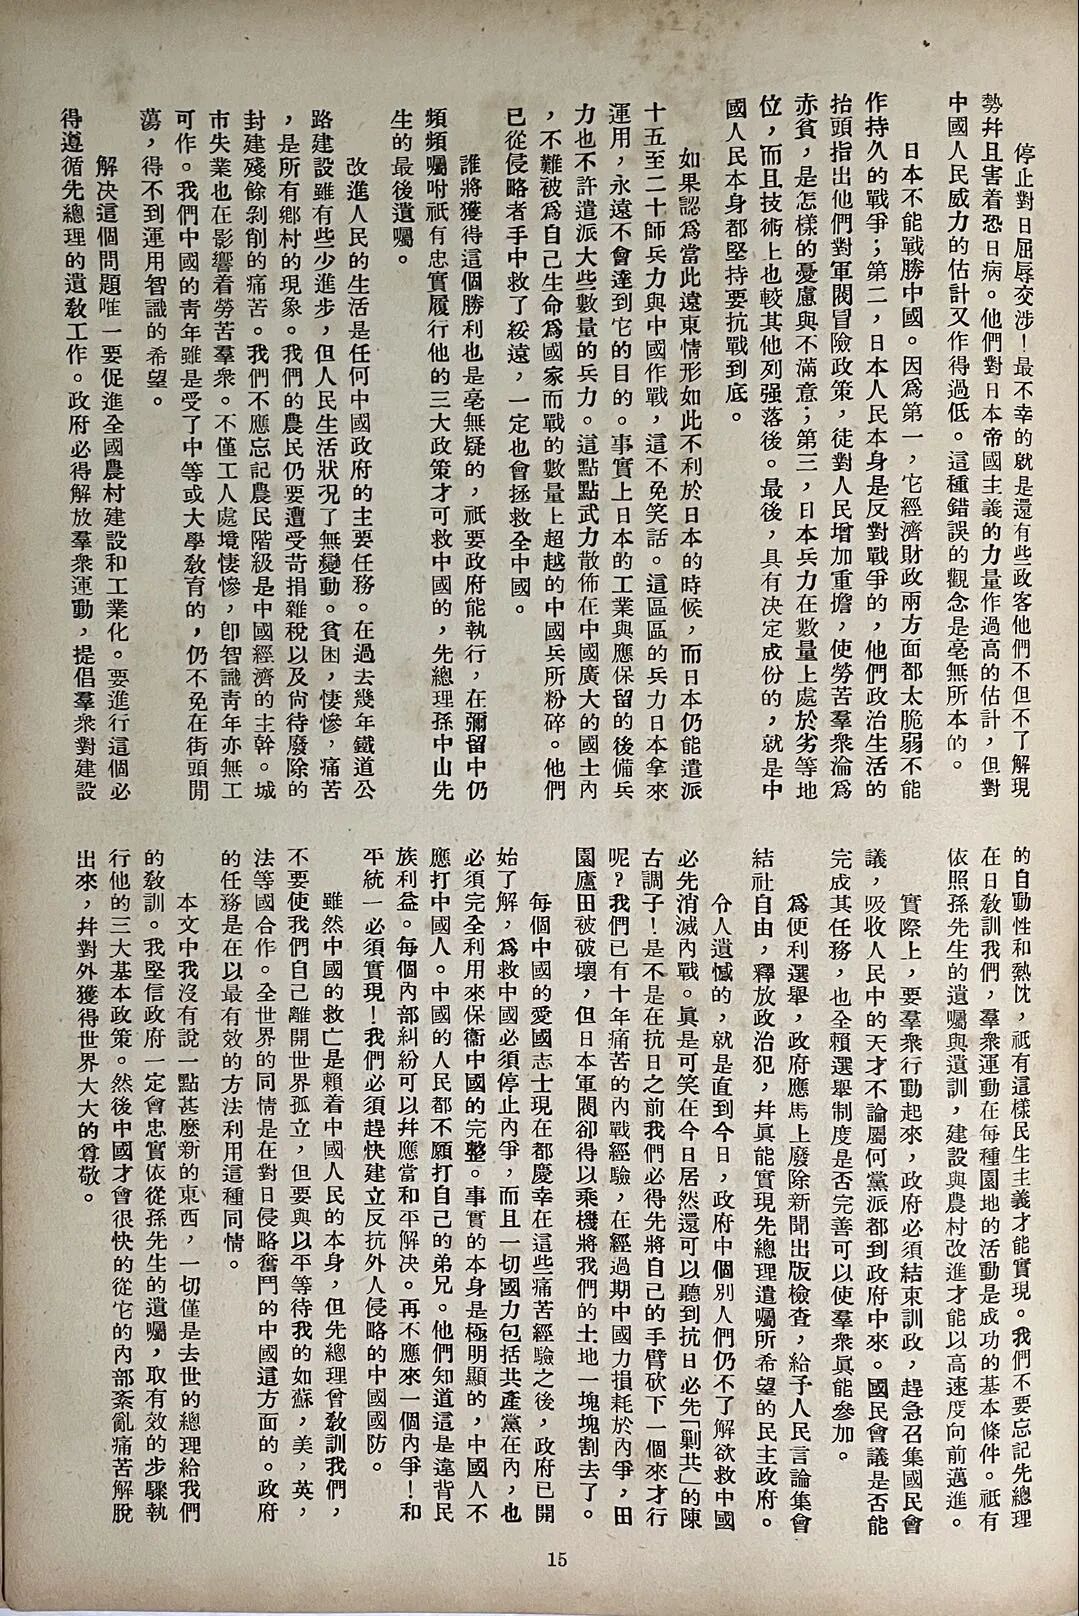 停止對日屈辱交涉！最不幸的就是還有些政客他們不但不了解現
勢幷且害着恐日病。他們對日本帝國主義的力量作過高的估計，但對
中國人民威力的估計又作得過低。這種錯誤的觀念是毫無所本的。
日本不能戰勝中國。因爲第一，它經濟財政兩方面都太脆弱不能
作持久的戰爭；第二，日本人民本身是反對戰爭的，他們政治生活的
抬頭指出他們對軍閥冒險政策，徒對人民增加重擔，使勞苦羣衆淪爲
赤貧，是怎樣的憂慮與不滿意；第三，日本兵力在數量上處於劣等地
位，而且技術上也較其他列强落後。最後，具有決定成份的，就是中
國人民本身都堅持要抗戰到底。
如果認爲當此遠東情形如此不利於日本的時候，而日本仍能遣派
十五至二十師兵力與中國作戰，這不免笑話。這區區的兵力日本拿來
運用，永遠不會達到它的目的。事實上日本的工業與應保留的後備兵
力也不許遣派大些數量的兵力。這點點武力散佈在中國廣大的國土內
，不難被爲自己生命爲國家而戰的數量上超越的中國兵所粉碎。他們
已從侵略者手中救了綏遠，一定也會拯救全中國。
誰將獲得這個勝利也是毫無疑的，祇要政府能執行，在彌留中仍
頻頻囑咐祇有忠實履行他的三大政策才可救中國的，先總理孫中山先
生的最後遺囑。
改進人民的生活是任何中國政府的主要任務。在過去幾年鐵道公
路建設雖有些少進步，但人民生活狀況了無變動。貧困，悽慘，痛苦
，是所有鄉村的現象。我們的農民仍要遭受苛捐雜稅以及尙待廢除的
封建殘餘剝削的痛苦。我們不應忘記農民階級是中國經濟的主幹。城
市失業也在影響着勞苦羣衆。不僅工人處境悽慘，卽智識靑年亦無工
可作。我們中國的靑年雖是受了中等或大學敎育的，仍不免在街頭閒
蕩，得不到運用智識的希望。
解決這個問題唯一要促進全國農村建設和工業化。要進行這個必
得遵循先總理的遺敎工作。政府必得解放羣衆運動，提倡羣衆對建設
的自動性和熱忱，祇有這樣民生主義才能實現。我們不要忘記先總理
在日敎訓我們，羣衆運動在每種園地的活動是成功的基本條件。祇有
依照孫先生的遺囑與遺訓，建設與農村改進才能以高速度向前邁進。
實際上，要羣衆行動起來，政府必須結束訓政，趕急召集國民會
議，吸收人民中的天才不論屬何黨派都到政府中來。國民會議是否能
完成其任務，也全賴選舉制度是否完善可以使羣衆眞能參加。
爲便利選舉，政府應馬上廢除新聞出版檢查，給予人民言論集會
結社自由，釋放政治犯，幷眞能實現先總理遺囑所希望的民主政府。
令人遺憾的，就是直到今日，政府中個別人們仍不了解欲救中國
必先消滅內戰。眞是可笑在今日居然還可以聽到抗日必先「剿共」的陳
古調子！是不是在抗日之前我們必得先將自己的手臂砍下一個來才行
呢？我們已有十年痛苦的內戰經驗，在經過期中國力損耗於內爭，田
園廬田被破壞，但日本軍閥卻得以乘機將我們的土地一塊塊割去了。
每個中國的愛國志士現在都慶幸在這些痛苦經驗之後，政府已開
始了解，爲救中國必須停止內爭，而且一切國力包括共產黨在內，也
必須完全利用來保衞中國的完整。事實的本身是極明顯的，中國人不
應打中國人。中國的人民都不願打自己的弟兄。他們知道這是違背民
族利益。每個內部糾紛可以幷應當和平解決。再不應來一個內爭！和
平統一必須實現！我們必須趕快建立反抗外人侵略的中國國防。
雖然中國的救亡是賴着中國人民的本身，但先總理曾敎訓我們，
不要使我們自己離開世界孤立，但要與以平等待我的如蘇，美，英，
法等國合作。全世界的同情是在對日侵略奮鬥的中國這方面的。政府
的任務是在以最有效的方法利用這種同情。
本文中我沒有說一點甚麽新的東西，一切僅是去世的總理給我們
的敎訓。我堅信政府一定會忠實依從孫先生的遺囑，取有效的步驟執
行他的三大基本政策。然後中國才會很快的從它的內部紊亂痛苦解脫
出來，幷對外獲得世界大大的尊敬。
15